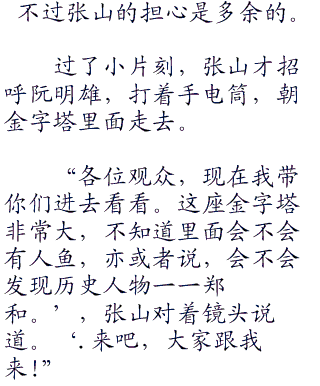 不过张山的担心是多余的。
过了小片刻，张山才招
呼阮明雄，打着手电筒，朝
金字塔里面走去。
“各位观众，现在我带
你们进去看看。这座金字塔
非常大，不知道里面会不会
有人鱼，亦或者说，会不会
发现历史人物一一郑
和。’，张山对着镜头说
道。‘.来吧，大家跟我
来!”